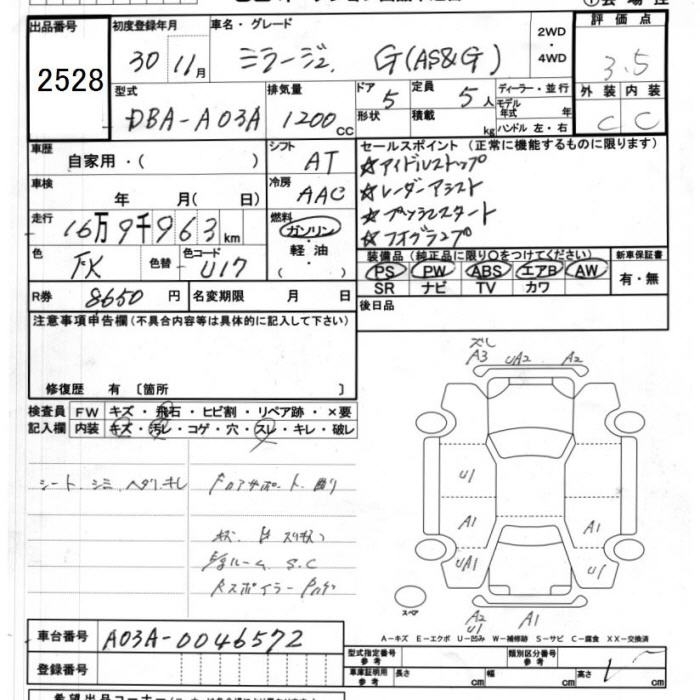 出品番号 初度登録年月 車名・グレード 2WD・4WD 評価点
2528 30 11月 ミラージュ G(AS&G) 3.5
型式 排気量 ドア 定員 ディーラー・並行 外装 内装
DBA-A03A 1200cc 5 5人 モデル年式 年 C C
形状 積載 kg ハンドル 左・右
車歴 シフト セールスポイント (正常に機能するものに限ります)
自家用・( ) AT ☆アイドルストップ
車検 冷房 ☆レーダーアシスト
年 月( 日) AAC ☆プッシュスタート
走行 16万9千963km 燃料 ガソリン ☆フォグランプ
軽油 ・( )
色 色替 色コード 装備品 (純正品に限り○をつけてください) 新車保証書
FK U17 PS PW ABS エアB AW 有・無
SR ナビ TV カワ
R券 8650円 名変期限 月 日 後日品
注意事項申告欄(不具合内容等は具体的に記入して下さい)
修復歴 有 〔箇所 〕
検査員 FW キズ・飛石・ヒビ割・リペア跡・×要
記入欄 内装 キズ・汚レ・コゲ・穴・スレ・キレ・破レ
A3 UA2 A2
シート シミ
U1
A1 A1
UA1 U1
S.C
スペア
A2 A1
U1
A-キズ E-エクボ U-凹み W-補修跡 S-サビ C-腐食 XX-交換済
車台番号 A03A-0046572
型式指定番号 参考 類別区分番号 参考
登録番号 車庫証明用 参考 長さ cm 幅 cm 高さ cm